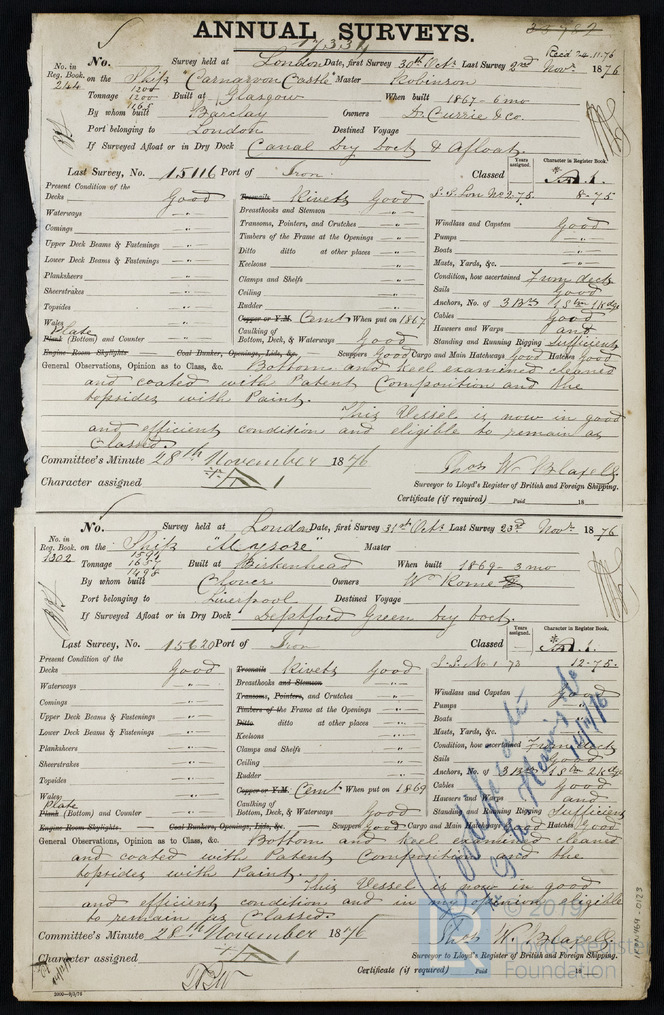 ANNUAL SURVEYS.
17334
33787
Recd 24.11.76
No. in Reg. Book. 244
No. Survey held at London Date, first Survey 30th Octr. Last Survey 2nd Novr. 1876
on the Ship "Carnarvon Castle" Master Robinson
Tonnage 1200 1165 Built at Glasgow When built 1867-6mo
By whom built Barclay Owners D. Currie & Co.
Port belonging to London Destined Voyage
If Surveyed Afloat or in Dry Dock Canal Dry Dock & Afloat.
Last Survey, No. 15116 Port of Iron. Classed
Years assigned.
Character in Register Book.
A.1.
Present Condition of the
Decks Good Treenails Rivets Good S.S. Lon No2.75. 8-75
Waterways Breasthooks and Stemson Windlass and Capstan Good
Comings Transoms, Pointers, and Crutches Pumps
Upper Deck Beams & Fastenings Timbers of the Frame at the Openings Boats
Lower Deck Beams & Fastenings Ditto ditto at other places Masts, Yards, &c.
Planksheers Keelsons Condition, how ascertained From deck
Sheerstrakes Clamps and Shelfs Sails Good
Topsides Ceiling Anchors, No. of 3 Brs
Wales Rudder Cables Good
Plate Plank (Bottom) and Counter Copper or Y.M. Cemt When put on 1867 Hawsers and Warps and
Caulking of Bottom, Deck, & Waterways Good Standing and Running Rigging Sufficient
Engine Room Skylights Coal Bunker, Openings, Lids, &c. Scuppers Good Cargo and Main Hatchways Good Hatches Good
General Observations, Opinion as to Class, &c. Bottom and Keel examined cleaned
and coated with Patent Composition and the
topsides with Paint.
This Vessel is now in good
and efficient condition and eligible to remain as
Classed
Committee's Minute 28th November 1876
Thos W. Blaxell
Character assigned
Surveyor to Lloyd's Register of British and Foreign Shipping.
Certificate (if required) Paid 18
No. in Reg. Book. 1302
No. Survey held at London Date, first Survey 31st Octr. Last Survey 23rd Novr. 1876
on the Ship "Mysore" Master
Tonnage 1594 1657 1498 Built at Birkenhead When built 1869-3mo
By whom built Clover Owners W Rome
Port belonging to Liverpool Destined Voyage
If Surveyed Afloat or in Dry Dock Deptford Green Dry Dock.
Last Survey, No. 15620 Port of Iron Classed
Years assigned.
Character in Register Book.
A.1.
Present Condition of the
Decks Good Treenails Rivets Good S.S. No 1 73 12-75.
Waterways Breasthooks and Stemson Windlass and Capstan Good
Comings Transoms, Pointers, and Crutches Pumps
Upper Deck Beams & Fastenings Timbers of the Frame at the Openings Boats
Lower Deck Beams & Fastenings Ditto ditto at other places Masts, Yards, &c.
Planksheers Keelsons Condition, how ascertained From deck
Sheerstrakes Clamps and Shelfs Sails Good
Topsides Ceiling Anchors, No. of 3 Brs
Wales Rudder Cables Good
Plate Plank (Bottom) and Counter Copper or Y.M. Cemt When put on 1869 Hawsers and Warps and
Caulking of Bottom, Deck, & Waterways Good Standing and Running Rigging Sufficient
Engine Room Skylights. Coal Bunkers, Openings, Lids, &c. Scuppers Good Cargo and Main Hatchways Good Hatches Good
General Observations, Opinion as to Class, &c. Bottom and Keel examined cleaned
and coated with Patent Composition and the
topsides with Paint.
This Vessel is now in good
and efficient condition and in my opinion eligible
to remain as Classed.
Certificate
Committee's Minute 28th November 1876
Thos W. Blaxell.
Character assigned
Surveyor to Lloyd's Register of British and Foreign Shipping.
Certificate (if required) Paid 18
© 2019
Register Foundation